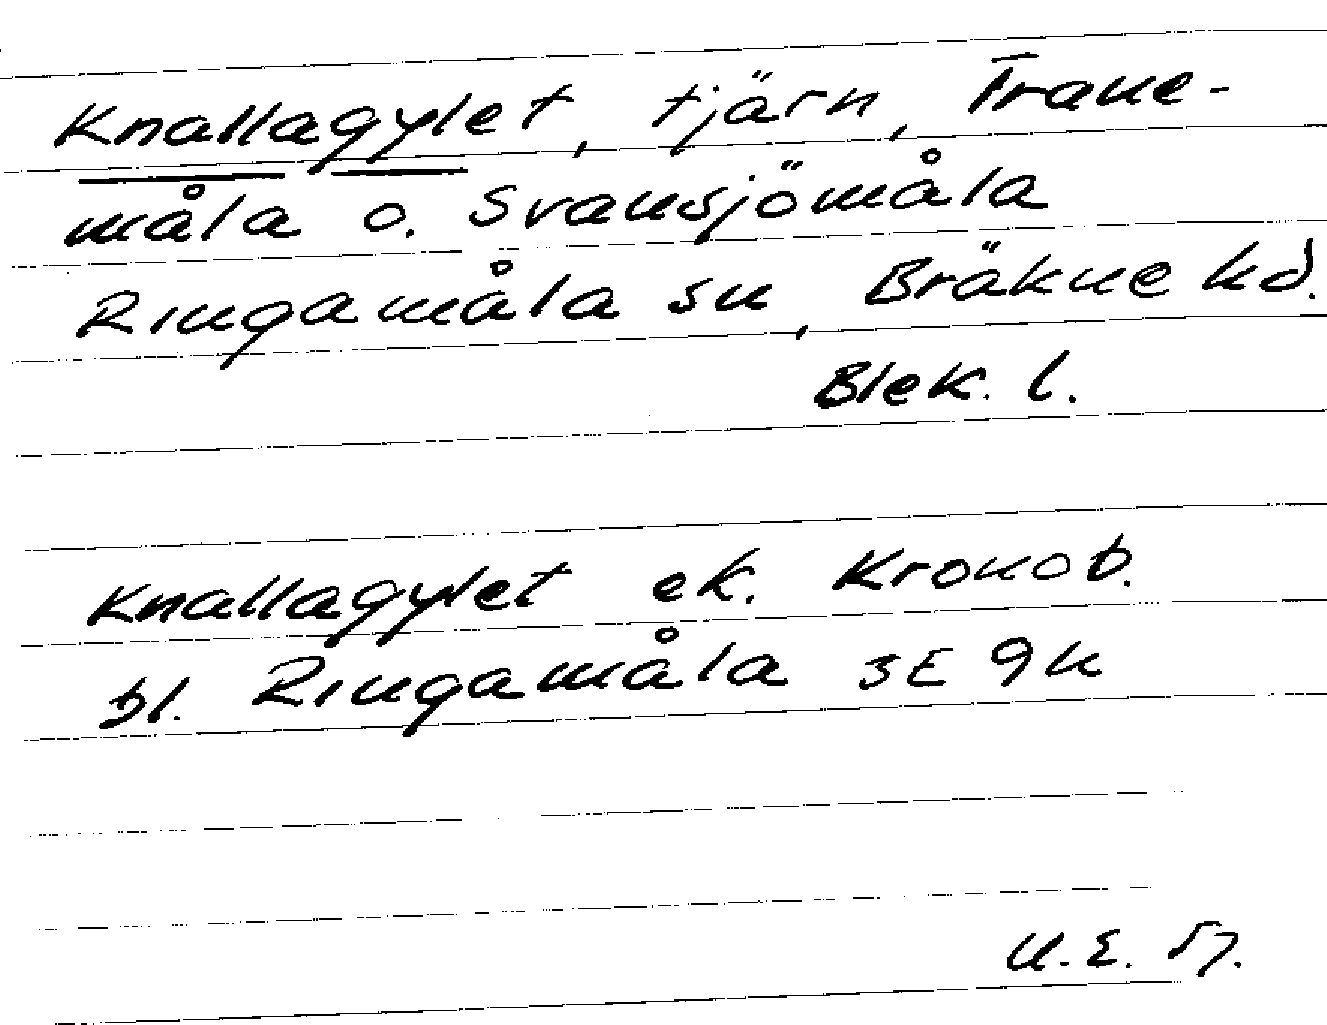 Knallagylet, tjärn, Trane-
måla o. Svansjömåla
Ringamåla sn, Bräkne hd.
Blek. l.
Knallagylet ek. Kronob.
bl. Ringamåla 3E 9n
U.E. 57.